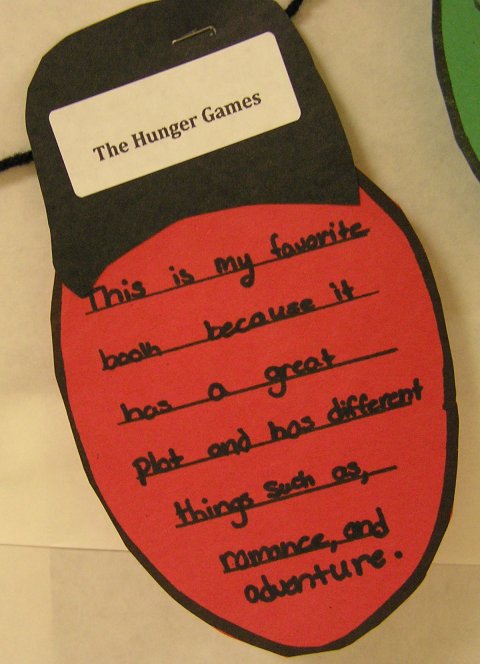 The Hunger Games
This is my favorite
book because it
has a great
plot and has different
things such as,
romance, and
adventure.